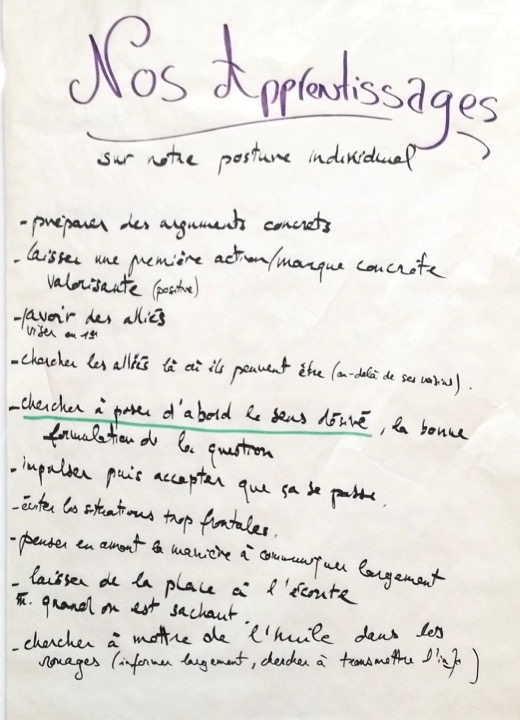 Nos Apprentissages
sur notre posture individuel
- préparer des arguments concrets
- laisser une première action/marque concrète
valorisante (positive)
- avoir des alliés
viser en 1er
- chercher les alliés là où ils peuvent être (au-delà de ses voisins).
- chercher à poser d'abord le sens désiré, la bonne
formulation de la question
- impulser puis accepter que ça se passe.
- éviter les situations trop frontales.
- penser en amont la manière à communiquer largement
- laisser de la place à l'écoute
m. quand on est sachant.
- chercher à mettre de l'huile dans les
rouages (informer largement, chercher à transmettre l'info)